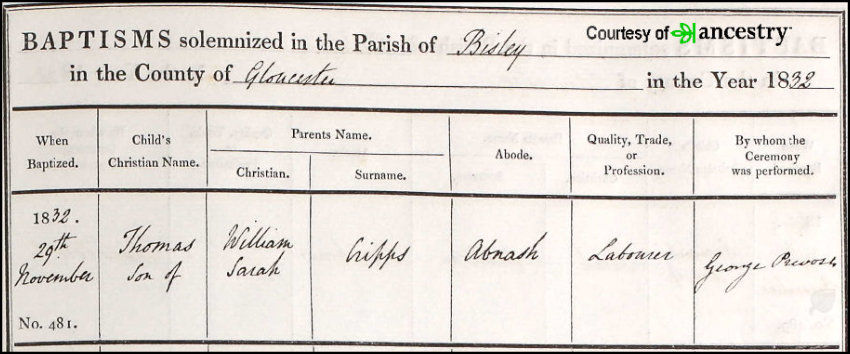 Courtesy of ancestry
BAPTISMS solemnized in the Parish of Bisley
in the County of Gloucester in the Year 1832
When Baptized.
Child's Christian Name.
Parents Name.
Christian.
Surname.
Abode.
Quality, Trade, or Profession.
By whom the Ceremony was performed.
1832.
29th
November
No. 481.
Thomas
Son of
William
Sarah
Cripps
Abnash
Labourer
George Prevost